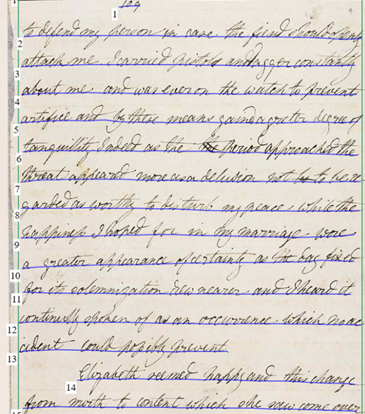 109
to defend my person in case the fiend should openly
attack me I carried pistols and dagger constantly
about me and was ever on the watch to prevent
artifice and by these means gained a greater degree of
tranquillity Indeed as the the period approached the
threat appeared more as a delusion not to be re
garded as worthy to disturb my peace - while the
happiness I hoped for in my marriage wore
a greater appearance of certainty as the day fixed
for its solemnization drew nearer - and I heard it
continually spoken of as an occurrence - which no ac
cident could possibly prevent
Elizabeth seemed happy and this change
from mirth to content which she now come over